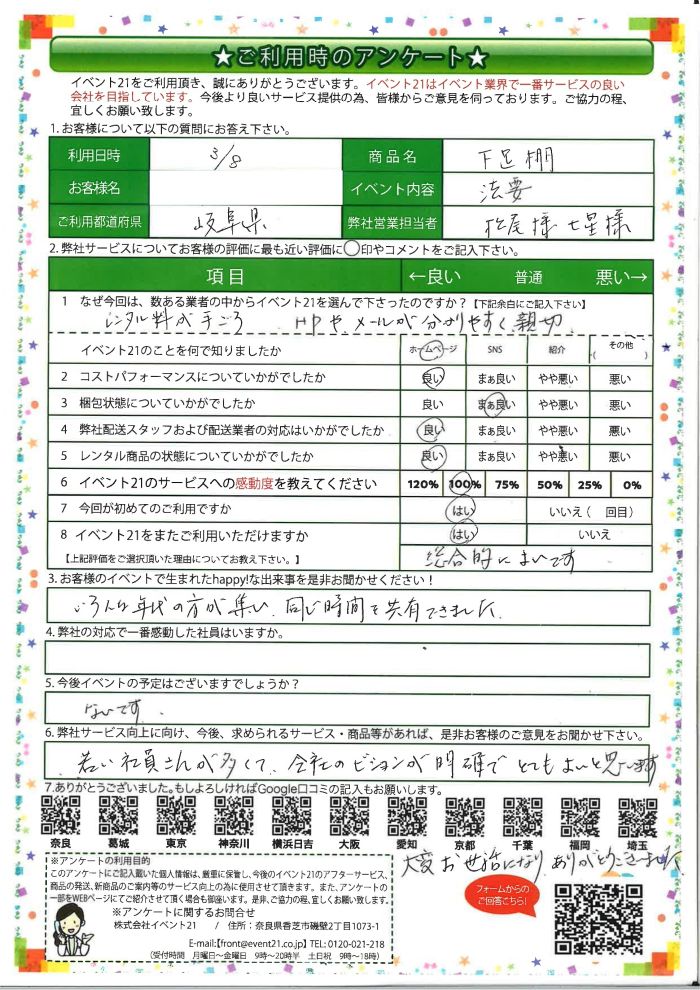 ★ご利用時のアンケート★
イベント21をご利用頂き、誠にありがとうございます。イベント21はイベント業界で一番サービスの良い
会社を目指しています。今後より良いサービス提供の為、皆様からご意見を伺っております。ご協力の程、
宜しくお願い致します。
1.お客様について以下の質問にお答え下さい。
利用日時 3/8 商品名 下足棚
お客様名 イベント内容 法要
ご利用都道府県 岐阜県 弊社営業担当者 松尾様 七星様
2.弊社サービスについてお客様の評価に最も近い評価に◯印やコメントをご記入下さい。
項目 ←良い 普通 悪い→
1 なぜ今回は、数ある業者の中からイベント21を選んで下さったのですか?【下記余白にご記入下さい】
レンタル料が手ごろ HPや、メールが分かりやすく親切
イベント21のことを何で知りましたか ホームページ SNS 紹介 その他( )
2 コストパフォーマンスについていかがでしたか 良い まぁ良い やや悪い 悪い
3 梱包状態についていかがでしたか 良い まぁ良い やや悪い 悪い
4 弊社配送スタッフおよび配送業者の対応はいかがでしたか 良い まぁ良い やや悪い 悪い
5 レンタル商品の状態についていかがでしたか 良い まぁ良い やや悪い 悪い
6 イベント21のサービスへの感動度を教えてください 120% 100% 75% 50% 25% 0%
7 今回が初めてのご利用ですか はい いいえ( 回目)
8 イベント21をまたご利用いただけますか はい いいえ
【上記評価をご選択頂いた理由についてお教え下さい。】 総合的によいです
3.お客様のイベントで生まれたhappy!な出来事を是非お聞かせください!
いろんな年代の方が集い、同じ時間を共有できました。
4.弊社の対応で一番感動した社員はいますか。
5.今後イベントの予定はございますでしょうか?
ないです。
6.弊社サービス向上に向け、今後、求められるサービス・商品等があれば、是非お客様のご意見をお聞かせ下さい。
若い社員さんが多くて、会社のビジョンが明確でとてもよいと思います
7.ありがとうございました。もしよろしければGoogle口コミの記入もお願いします。
奈良 葛城 東京 神奈川 横浜日吉 大阪 愛知 京都 千葉 福岡 埼玉
大変お世話になり、ありがとうございました
※アンケートの利用目的
このアンケートにご記入戴いた個人情報は、厳重に保管し、今後のイベント21のアフターサービス、
商品の発送、新商品のご案内等のサービス向上の為に使用させて頂きます。また、アンケートの
一部をWEBページにてご紹介させて頂く場合も御座います。是非、ご協力の程、宜しくお願い致します。
※アンケートに関するお問合せ
株式会社イベント21 / 住所:奈良県香芝市磯壁2丁目1073-1
E-mail:【front@event21.co.jp】 TEL:0120-021-218
(受付時間 月曜日〜金曜日 9時〜20時半 土日祝 9時〜18時)
フォームからの
ご回答こちら!